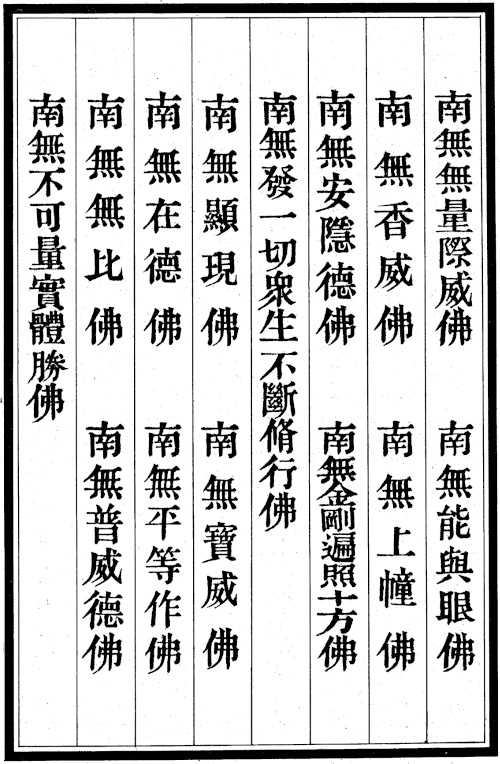 南無無量際威佛　南無能與眼佛
南無香威佛　南無上幢佛
南無安隱德佛　南無金剛遍照十方佛
南無發一切衆生不斷脩行佛
南無顯現佛　南無寶威佛
南無在德佛　南無平等作佛
南無無比佛　南無普威德佛
南無不可量實體勝佛